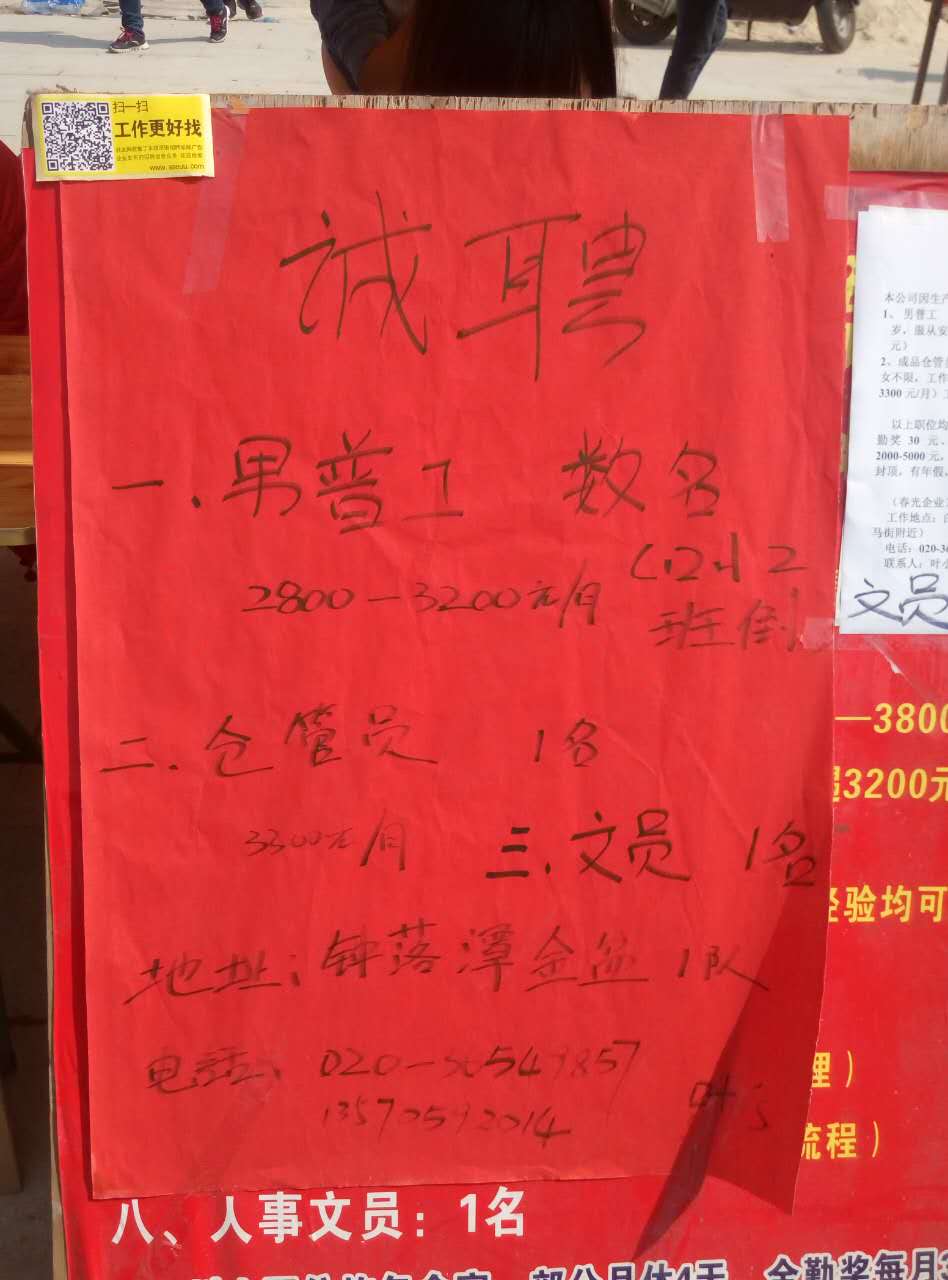 扫一扫
工作更好找
诚聘
一、男普工 数名
2800-3200元/月
班倒
二、仓管员 1名
3300元/月
三、文员 1名
地址:钟落潭金盆1队
电话:
13570592014
本公司因生产
1、男普工
岁,服从安
元)
2、成品仓管
女不限,工作
3300元/月)
以上职位均
勤奖 30 元、
2000-5000元,
封顶,有年假,
(春光企业
工作地点:
马街附近)
电话:020-36
联系人:叶小
文员
—3800
3200元
经验均可
理)
流程)
八、人事文员:1名